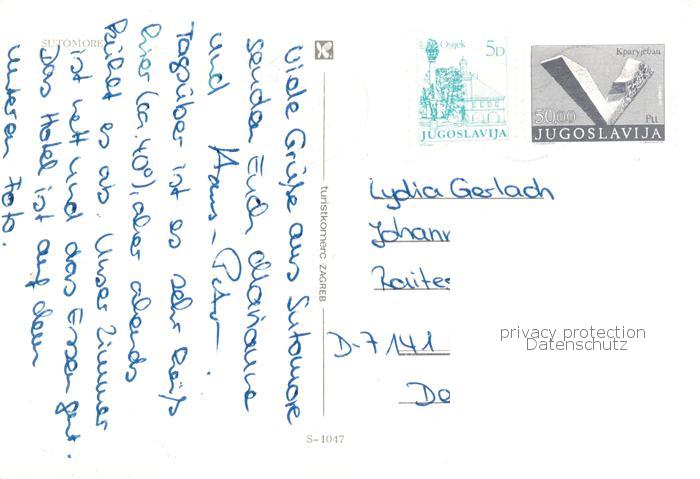 SUTOMORE
Viele Grüße aus Sutomore
senden Euch Marianne
und Hans-Peter.
Tagsüber ist es sehr heiß
hier (ca. 40°), aber abends
kühlt es ab. Unser Zimmer
ist nett und das Essen gut.
Das Hotel ist auf dem
unteren Foto.
turistkomerc ZAGREB
S-1047
Osijek
5D
JUGOSLAVIJA
Крагујевац
50.00
JUGOSLAVIJA
Lydia Gerlach
Johann
D-7141
privacy protection
Datenschutz